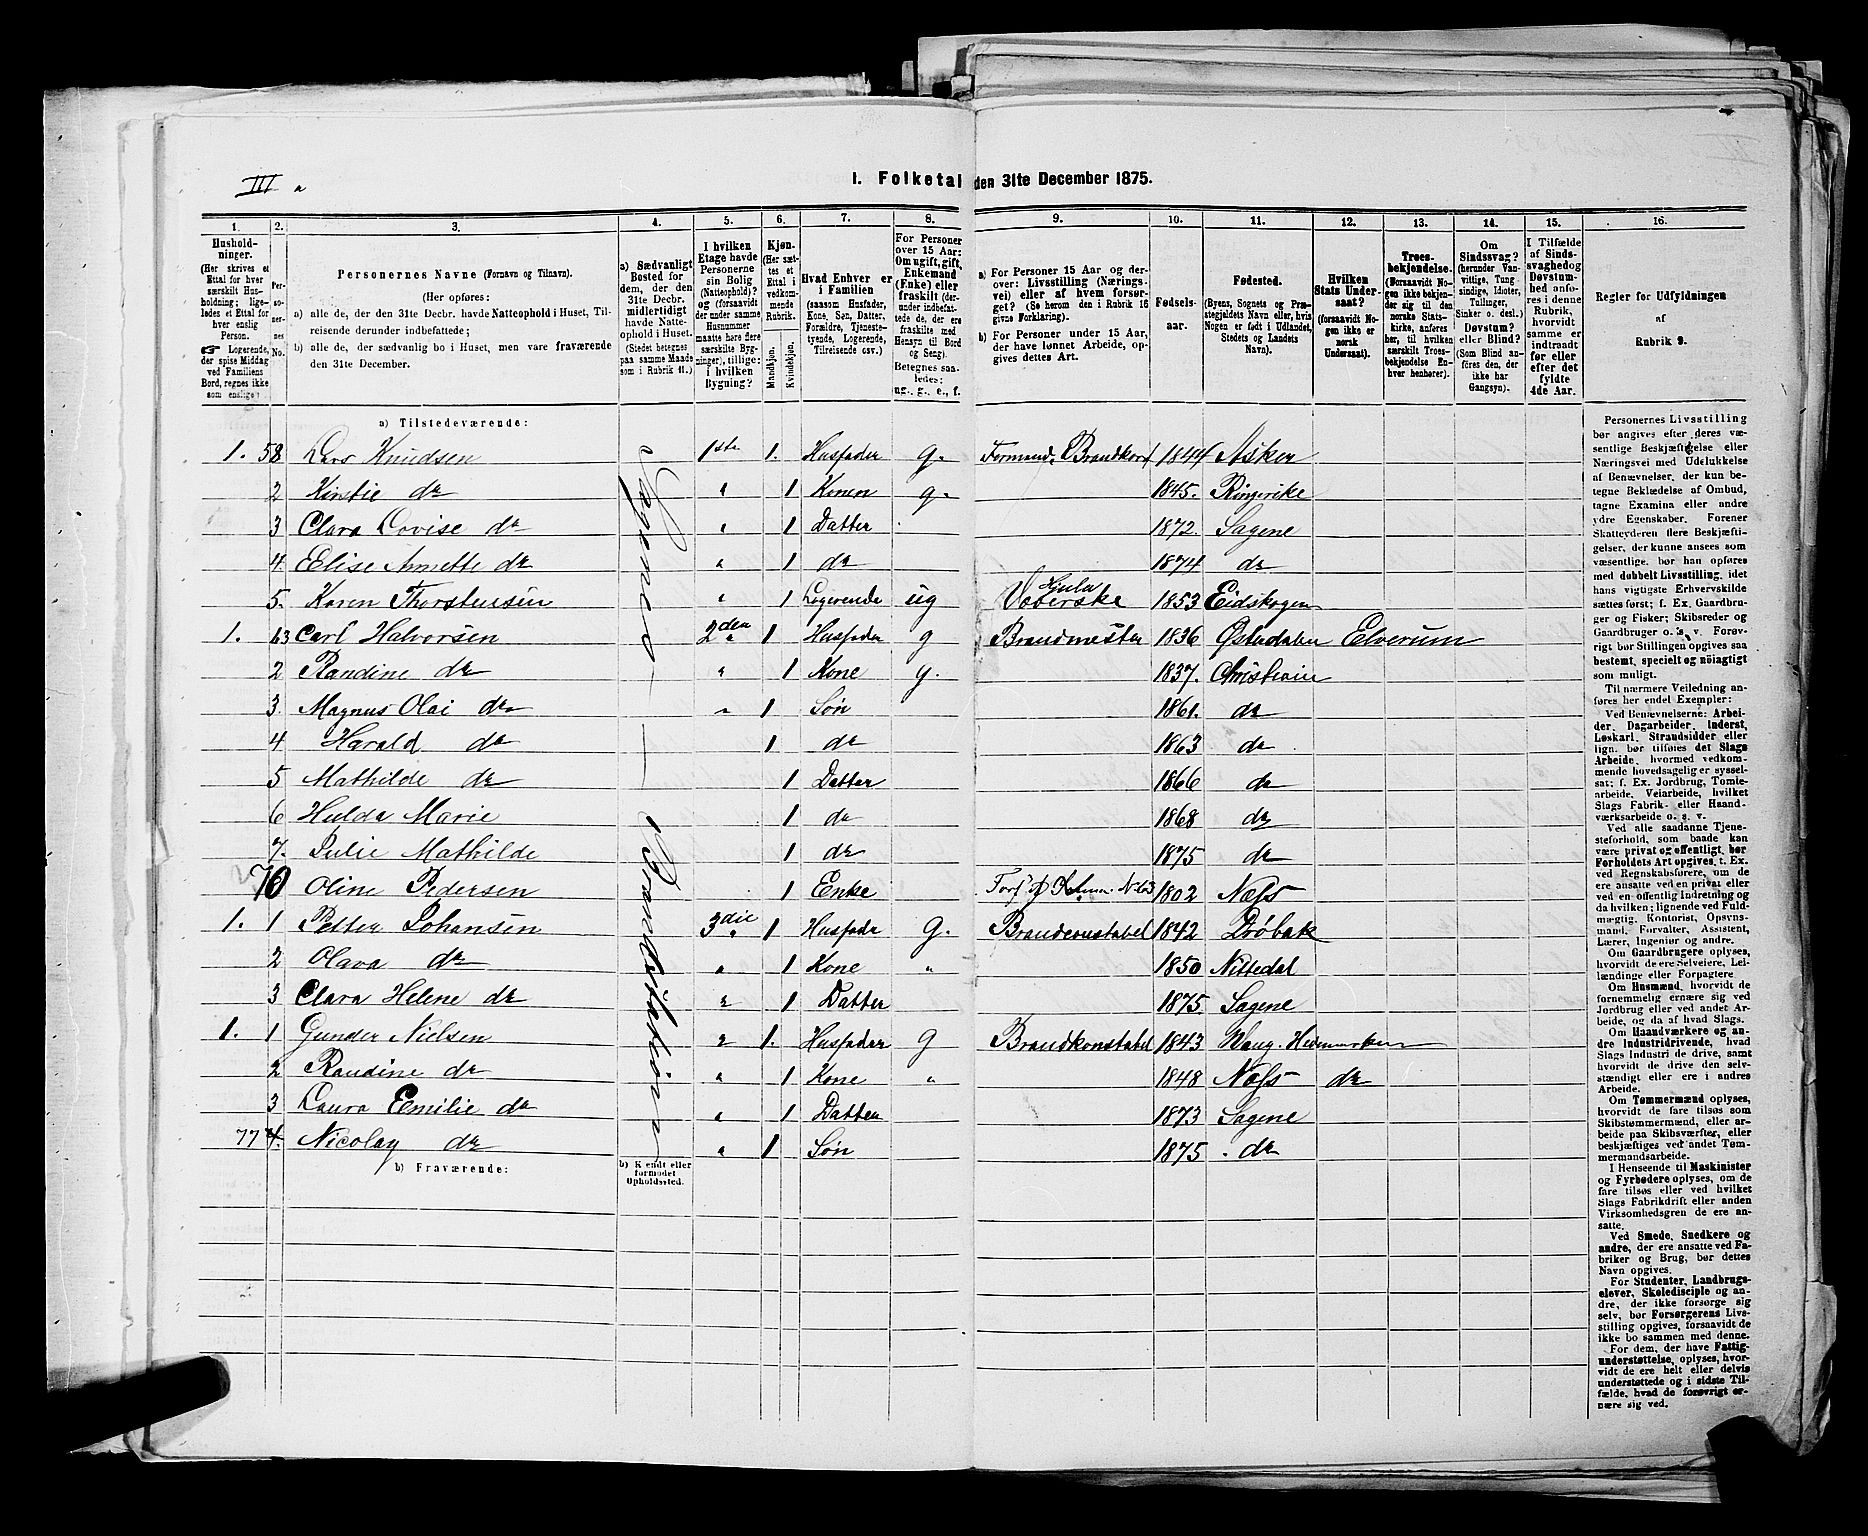 III a
I. Folketal den 31te December 1875.
1. 2. 3. 4. 5. 6. 7. 8. 9. 10. 11. 12. 13. 14. 15. 16.
Husholdninger.
(Her skrives et Ettal for hver særskilt Husholdning; ligeledes et Ettal for hver enslig Person.
☞ Logerende, der spise Middag ved Familiens Bord, regnes ikke som enslige)
Personernes No.
Personernes Navne (Fornavn og Tilnavn).
(Her opføres:
a) alle de, der den 31te Decbr. havde Natteophold i Huset, Tilreisende derunder indbefattede;
b) alle de, der sædvanlig bo i Huset, men vare fraværende den 31te December.
a) Sædvanligt Bosted for dem, der den 31te Decbr. midlertidigt havde Natteophold i Huset.
(Stedet betegnes paa samme Maade som i Rubrik 11.)
I hvilken Etage havde Personerne sin Bolig (Natteophold)? og (forsaavidt der under samme Husnummer maatte høre flere særskilte Bygninger), tillige: i hvilken Bygning?
Kjøn. (Her sættes et Ettal i vedkommende Rubrik.
Mandkjøn.
Kvindekjøn.
Hvad Enhver er i Familien
(saasom Husfader, Kone, Søn, Datter, Forældre, Tjenestetyende, Logerende, Tilreisende osv.)
For Personer over 15 Aar: Om ugift, gift, Enkemand (Enke) eller fraskilt (derunder indbefattede de, der ere fraskilte med Hensyn til Bord og Seng)
Betegnes saaledes: ug., g., e., f.
a) For Personer 15 Aar og derover: Livsstilling (Næringsvei) eller af hvem forsørget? (Se herom den i Rubrik 16 givne Forklaring).
b) For Personer under 15 Aar, der have lønnet Arbeide, opgives dettes Art.
Fødselsaar.
Fødested.
(Byens, Sognets og Præstegjeldets Navn eller, hvis Nogen er født i Udlandet, Stedets og Landets Navn).
Hvilken Stats Undersaat?
(forsaavidt Nogen ikke er norsk Undersaat).
Troesbekjendelse.
(Forsaavidt Nogen ikke bekjender sig til den norske Statskirke, anføres her, til hvilken særskilt Troesbekjendelse Enhver henhører).
Om Sindssvag? (herunder Vanvittige, Tungsindige, Idioter, Tullinger, Sinker o. desl.)
Døvstum? eller Blind?
(Som Blind anføres den, der ikke har Gangsyn).
I Tilfælde af Sindssvaghed og Døvstumhed, anføres i denne Rubrik, hvorvidt samme er indtraadt før eller efter det fyldte 4de Aar.
Regler for Udfyldningen af Rubrik 9.
a) Tilstedeværende:
Sagenes — Brandstation
1. 58 Lars Knudsen 1ste 1. Husfader g. Formand, Brandkor 1844 Asker
2 Kirstie do " 1 Konen g. 1845. Ringerike
3 Clara Lovise do " 1 Datter 1872. Sagene
4. Elise Annette do " 1 do 1874 do
5. Karen Thorstensen " 1 Logerende ug Hjula Væverske 1853 Eidskogen
1. 63 Carl Halvorsen 2den 1 Husfader g Brandmester 1836 Østerdalen Elverum
2 Randine do " 1 Kone g. 1837. Christiania
3. Magnus Olai do " 1 Søn 1861. do
4 Harald do 1 do 1863 do
5 Mathilde do 1 Datter 1866 do
6 Hulda Marie 1 do 1868 do
7. Julie Mathilde 1 do 1875 do
70 Oline Pedersen 1 Enke Fors. af No 63 1802 Næss
1. 1 Petter Johansen 3die 1 Husfader G. Brandconstabel 1842 Drøbak
2 Olava do " 1 Kone " 1850 Nittedal
3 Clara Helene do " 1 Datter 1875. Sagene
1. 1 Gunder Nielsen " 1. Husfader G Brandkonstabel 1843 Vang. Hedemarken
2 Randine do " 1 Kone " 1848 Næss do
3 Laura Eemilie do " 1 Datter 1873 Sagene
77 4. Nicolay do " 1 Søn 1875 do
b) Fraværende:
b) Kjendt eller formodet Opholdssted.
Personernes Livsstilling bør angives efter deres væsentlige Beskjæftigelse eller Næringsvei med Udelukkelse af Benævnelser, der kun betegne Beklædelse af Ombud, tagne Examina eller andre ydre Egenskaber. Forener Skatteyderen flere Beskjæftigelser, der kunne ansees som væsentlige, bør han opføres med dobbelt Livsstilling, idet hans vigtigste Erhvervskilde sættes først; f. Ex. Gaardbruger og Fisker; Skibsreder og Gaardbruger o. s. v. Forøvrigt bør Stillingen opgives saa bestemt, specielt og nöiagtigt som muligt.
Til nærmere Veiledning anføres her endel Exempler:
Ved Benævnelserne: Arbeider, Dagarbeider, Inderst, Løskarl, Strandsidder eller lign. bør tilføies det Slags Arbeide, hvormed vedkommende hovedsagelig er sysselsat; f. Ex. Jordbrug, Tomtearbeide, Veiarbeide, hvilket Slags Fabrik- eller Haandværksarbeide o. s. v.
Ved alle saadanne Tjenesteforhold, som baade kan være privat og offentligt, bør Forholdets Art opgives, t. Ex. ved Regnskabsførere, om de ere ansatte ved en privat eller ved en offentlig Indretning og da hvilken; lignende ved Fuldmægtig, Kontorist, Opsynsmand, Forvalter, Assistent, Lærer, Ingeniør og andre.
Om Gaardbrugere oplyses, hvorvidt de ere Selveiere, Leilændinge eller Forpagtere
Om Husmænd, hvorvidt de fornemmelig ernære sig ved Jordbrug eller ved andet Arbeide, og da af hvad Slags.
Om Haandværkere og andre Industridrivende, hvad Slags Industri de drive, samt hvorvidt de drive den selvstændigt eller ere i andres Arbeide.
Om Tømmermænd oplyses, hvorvidt de fare tilsøs som Skibstømmermænd, eller arbeide paa Skibsværfter, eller beskjæftiges ved andet Tømmermandsarbeide.
I Henseende til Maskinister og Fyrbødere oplyses, om de fare tilsøs eller ved hvilket Slags Fabrikdrift eller anden Virksomhedsgren de ere ansatte.
Ved Smede, Snedkere og andre, der ere ansatte ved Fabriker og Brug, bør dettes Navn opgives.
For Studenter, Landbrugselever, Skoledisciple og andre, der ikke forsørge sig selv, bør Forsørgerens Livsstilling opgives, forsaavidt de ikke bo sammen med denne.
For dem, der have Fattigunderstøttelse, oplyses, hvorvidt de ere helt eller delvis understøttede og i sidste Tilfælde, hvad de forøvrigt ernære sig ved.